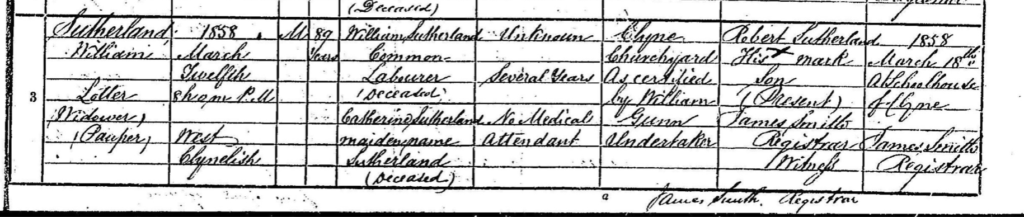 (Deceased)
3
Sutherland
William
Lotter
(Widower)
(Pauper)
1858
March
Twelfth
8h 0m P.M
West
Clynelish
M
89
Years
William Sutherland
Common
Labourer
(Deceased)
Catherine Sutherland
maiden name
Sutherland
(Deceased)
Unknown
Several Years
No Medical
Attendant
Clyne
Churchyard
As certified
by William
Gunn
Undertaker
Robert Sutherland
His x mark
Son
(Present)
James Smith
Registrar
Witness
1858
March 18th
At Schoolhouse
of Clyne
James Smith
Registrar
James Smith Registrar